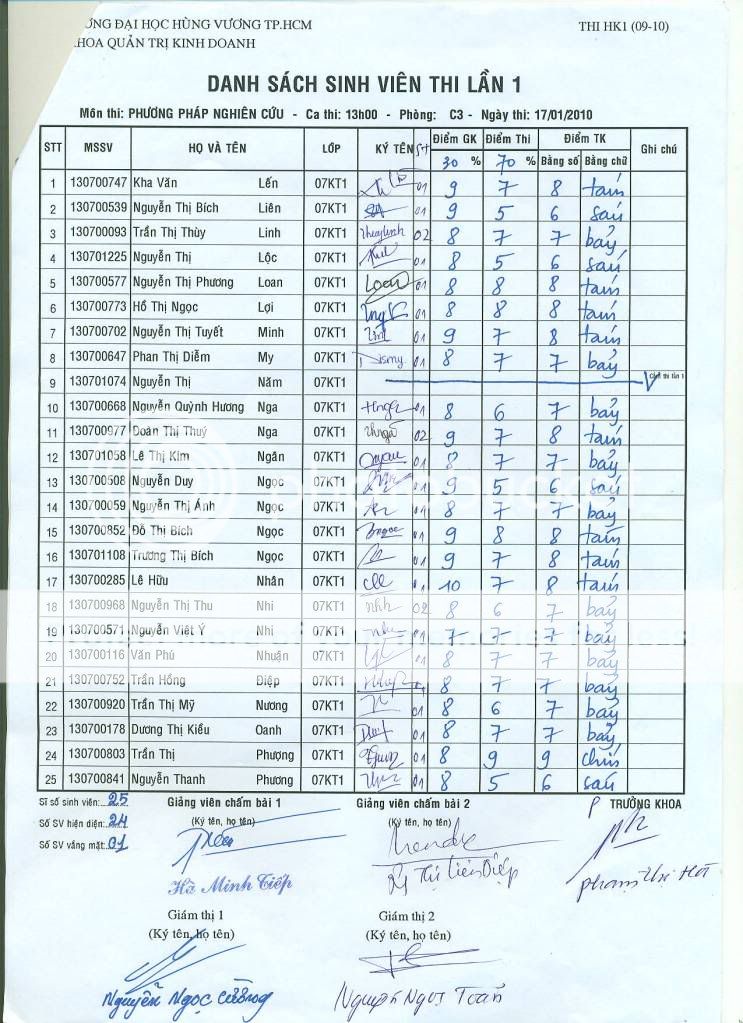 ỜNG ĐẠI HỌC HÙNG VƯƠNG TP.HCM THI HK1 (09-10)
KHOA QUẢN TRỊ KINH DOANH
DANH SÁCH SINH VIÊN THI LẦN 1
Môn thi: PHƯƠNG PHÁP NGHIÊN CỨU - Ca thi: 13h00 - Phòng: C3 - Ngày thi: 17/01/2010
STT MSSV HỌ VÀ TÊN LỚP KÝ TÊN ST Điểm GK Điểm Thi Điểm TK Ghi chú
30 % 70 % Bằng số Bằng chữ
1 130700747 Kha Văn Lến 07KT1 01 9 7 8 tám
2 130700539 Nguyễn Thị Bích Liên 07KT1 01 9 5 6 sáu
3 130700093 Trần Thị Thùy Linh 07KT1 Thuylinh 02 8 7 7 bảy
4 130701225 Nguyễn Thị Lộc 07KT1 01 8 5 6 sáu
5 130700577 Nguyễn Thị Phương Loan 07KT1 Loan 01 8 8 8 tám
6 130700773 Hồ Thị Ngọc Lợi 07KT1 01 8 8 8 tám
7 130700702 Nguyễn Thị Tuyết Minh 07KT1 01 9 7 8 tám
8 130700647 Phan Thị Diễm My 07KT1 01 8 7 7 bảy
9 130701074 Nguyễn Thị Năm 07KT1 V thi lần 1
10 130700668 Nguyễn Quỳnh Hương Nga 07KT1 01 8 6 7 bảy
11 130700977 Đoàn Thị Thuý Nga 07KT1 02 9 7 8 tám
12 130701058 Lê Thị Kim Ngân 07KT1 01 8 7 7 bảy
13 130700508 Nguyễn Duy Ngọc 07KT1 01 9 5 6 sáu
14 130700059 Nguyễn Thị Ánh Ngọc 07KT1 01 8 7 7 bảy
15 130700852 Đỗ Thị Bích Ngọc 07KT1 01 9 8 8 tám
16 130701108 Trương Thị Bích Ngọc 07KT1 01 9 7 8 tám
17 130700285 Lê Hữu Nhân 07KT1 01 10 7 8 tám
18 130700968 Nguyễn Thị Thu Nhi 07KT1 nhh 02 8 6 7 bảy
19 130700571 Nguyễn Viết Ý Nhi 07KT1 01 7 7 7 bảy
20 130700116 Văn Phú Nhuận 07KT1 01 8 7 7 bảy
21 130700752 Trần Hồng Điệp 07KT1 01 8 7 7 bảy
22 130700920 Trần Thị Mỹ Nương 07KT1 01 8 6 7 bảy
23 130700178 Dương Thị Kiều Oanh 07KT1 01 8 7 7 bảy
24 130700803 Trần Thị Phượng 07KT1 01 8 9 9 chín
25 130700841 Nguyễn Thanh Phương 07KT1 01 8 5 6 sáu
Sĩ số sinh viên: 25 Giảng viên chấm bài 1 Giảng viên chấm bài 2 P TRƯỞNG KHOA
Số SV hiện diện: 24 (Ký tên, họ tên) (Ký tên, họ tên)
Số SV vắng mặt: 01
Hà Minh Tiếp Thị Liên Diệp Phạm Thị Hà
Giám thị 1 Giám thị 2
(Ký tên, họ tên) (Ký tên, họ tên)
Nguyễn Ngọc Cường Nguyễn Ngọc Toản